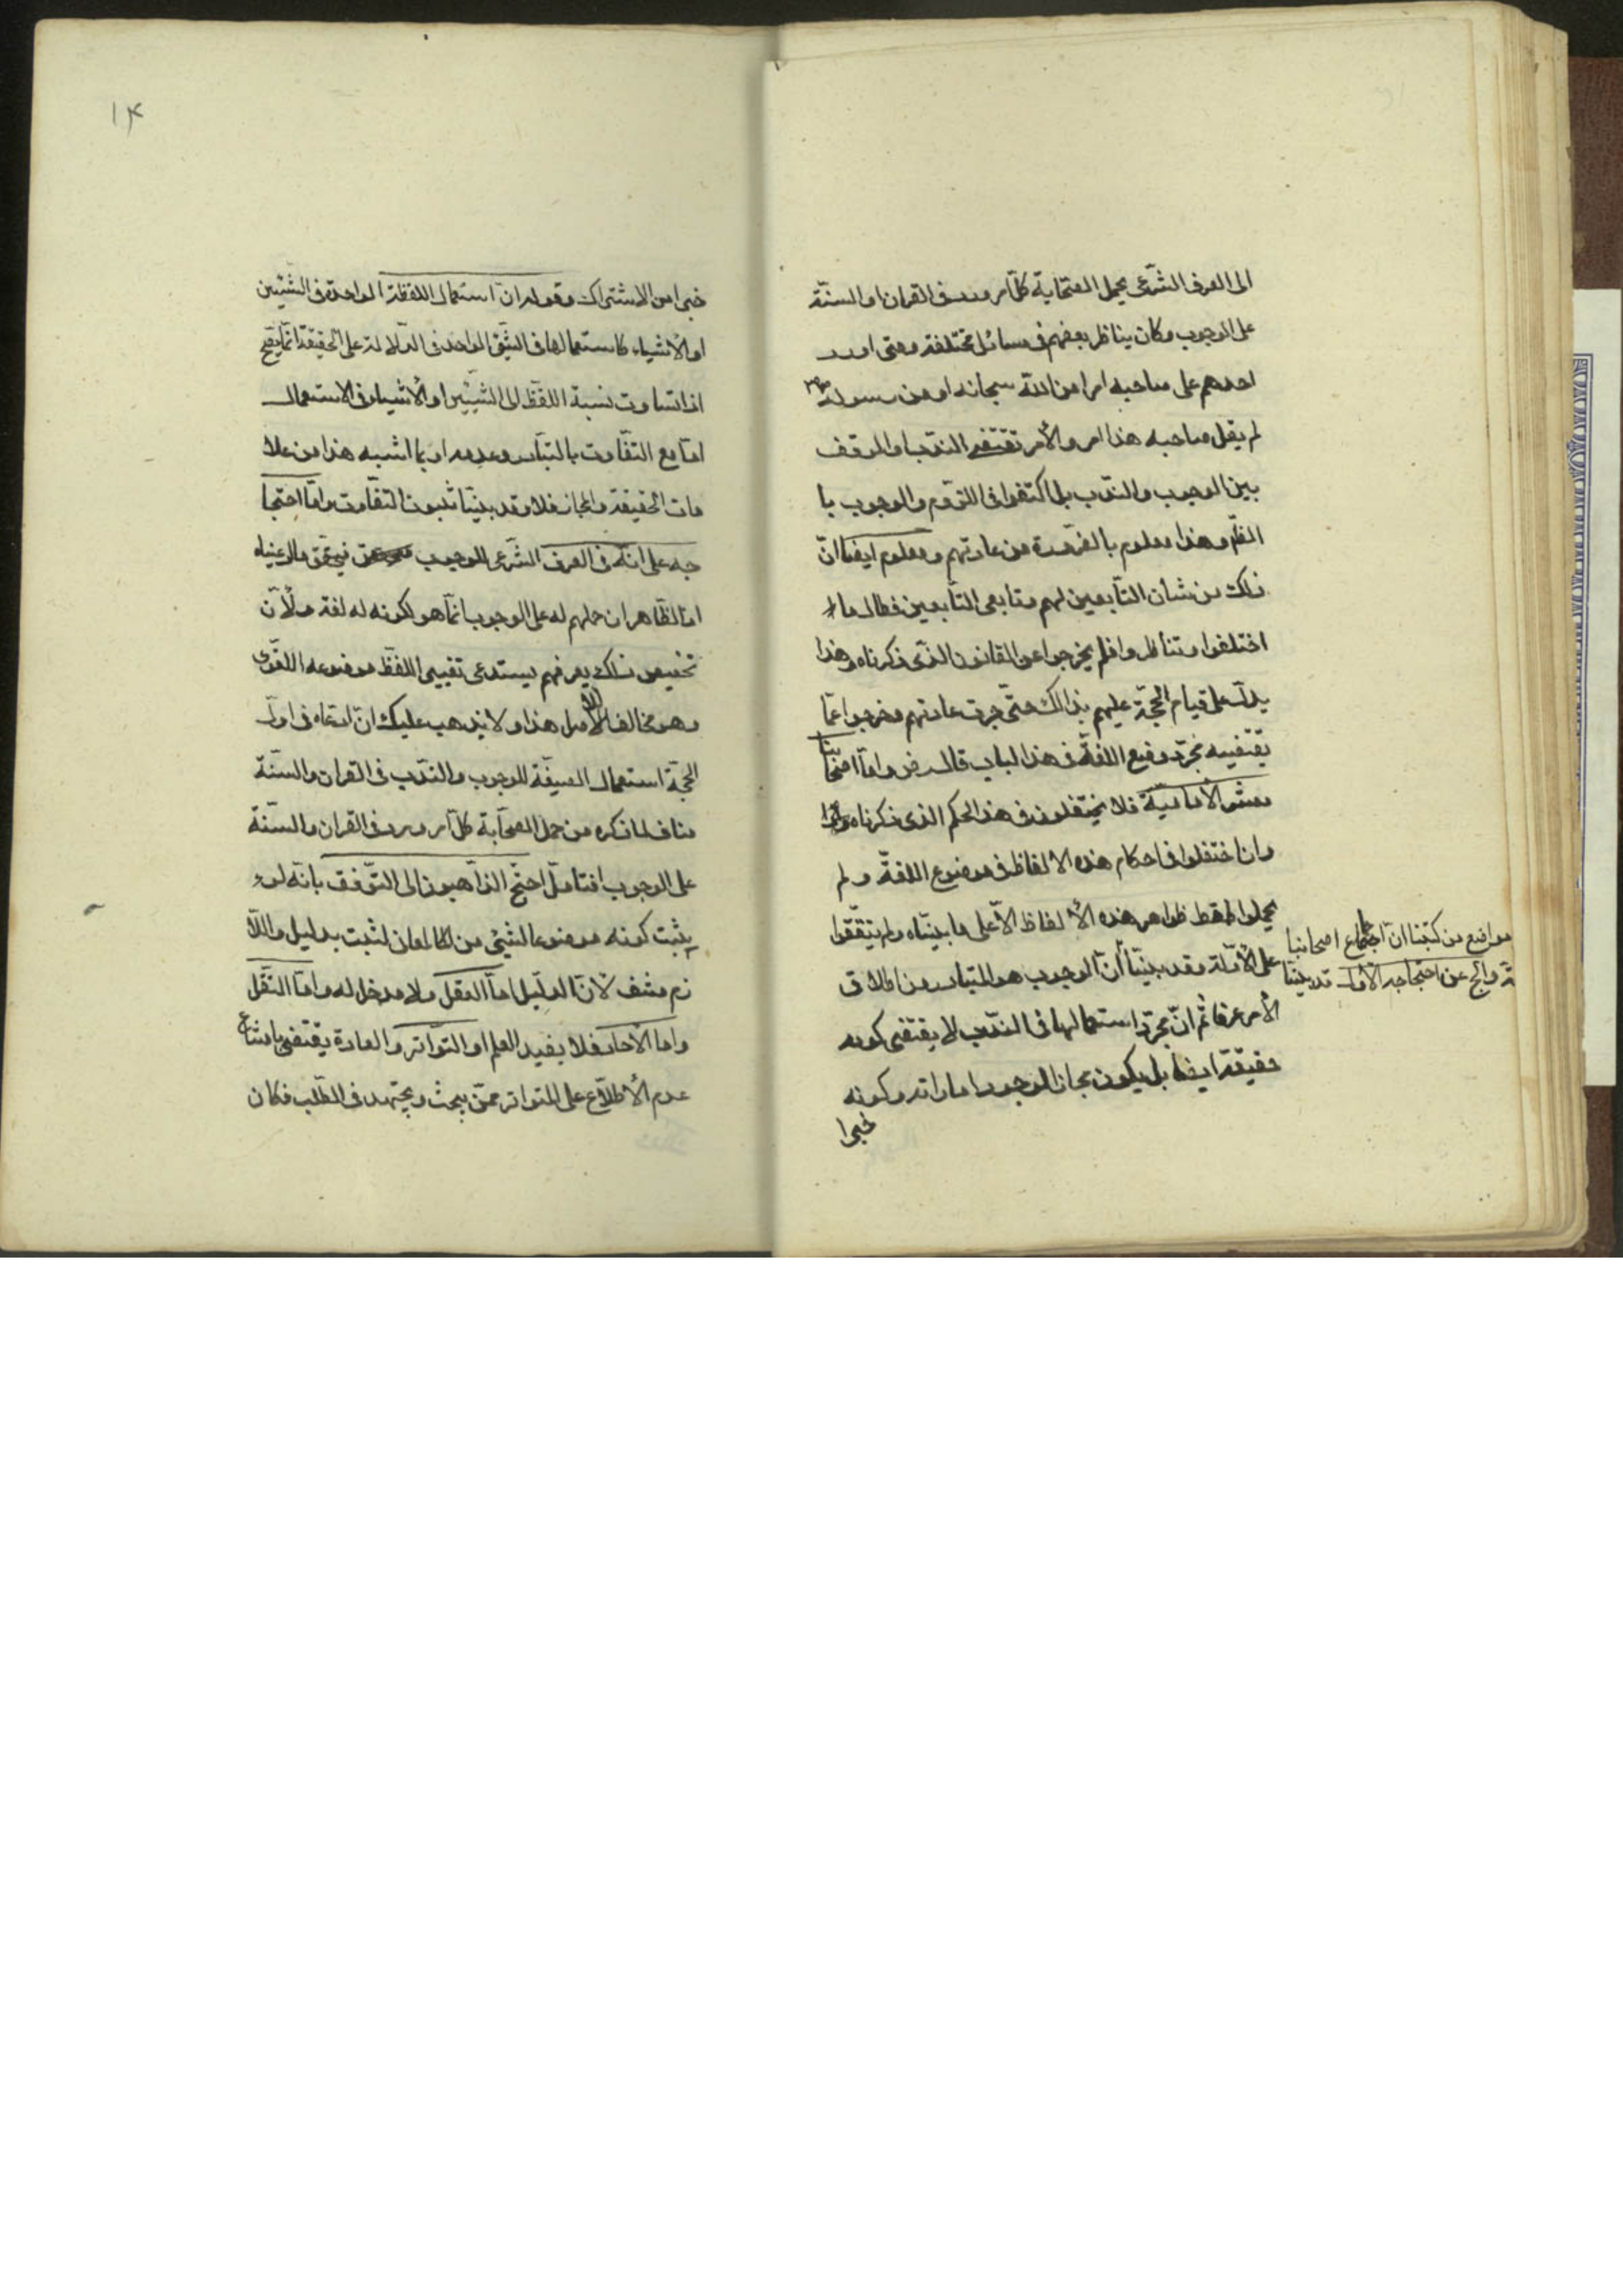 الى العرف الشرعى بحمل الصحابة كل امر ورد فى القران او السنة
على الوجوب وكان يناظر بعضهم فى مسائل مختلفة ومتى اورد
احدهم على صاحبه امرا من الله سبحانه او من رسوله ص
لم يقل صاحبه هذا امر والأمر تقتضى الندب او الوقف
بين الوجوب والندب بل اكتفوا فى اللزوم والوجوب با
الظاهر وهذا معلوم بالضرورة من عادتهم ومعلوم ايضا ان
ذلك من شان التابعين لهم وتابعى التابعين فطال ما
اختلفوا وتناظروا فلم يخرجوا عن القانون الذى ذكرناه وهذا
يدل على قيام الحجة عليهم بذالك حتى جرت عادتهم وخرجوا عما
يقتضيه مجرد وضع اللغة فى هذا الباب قال رض واما اصحابنا
معشر الأمامية فلا يختفلون فى هذا الحكم الذى ذكرناه
وان اختفلوا فى احكام هذه الالفاظ فى موضوع اللغة ولم
يحملوا قط ظواهر هذه الألفاظ الا على ما بيناه ولم يتوقفوا
على الأدلة وقد بينا
مواضع من كتبنا ان اجماع اصحابنا
حجة والج عن احتجاجه الأول قد بينا
أن الوجوب هو المتبادر من اطلاق
الأمر عرفا ثم ان مجرد استعمالها فى الندب لا يقتضى كونه
حقيقة ايضا بل يكون مجازا لوجود اماراته وكونه
خيرا
١٤
خيرا من الاشتراك وقوله ان استعمال اللفظة الواحدة فى الشيئين
او الأشياء كاستعمالها فى الشئ الواحد فى الدلالة على الحقيقة انما يصح
اذا تساوت نسبة اللفظ الى الشيئين او الأشياء فى الاستعمال
اما مع التفاوت بالتبادر وعدمه او بما اشبه هذا من علا
مات الحقيقة والمجاز فلا وقد بينا ثبوت التفاوت واما احتجا
جه على انه فى العرف الشرعى للوجوب فيحقق ما ادعيناه
اذا الظاهر ان حملهم له على الوجوب انما هو لكونه له لغة ولأن
تخصيص ذلك بعرفهم يستدعى تغيير اللفظ موضوعه اللغوى
وهو مخالف للأصل هذا ولا يذهب عليك ان ادعاه فى اول
الحجة استعمال الصيغة للوجوب والندب فى القران والسنة
مناف لما ذكره من حمل الصحابة كل امر ورد فى القران والسنة
على الوجوب فتامل احتج الذاهبون الى التوفق بانه لو
يثبت كونه موضوعا لشئ من المعان لثبت بدليل واللا
زم منتف لأن الدليل اما العقل ولا مدخل له واما النقل
واما الأحاد فلا يفيد العلم او التواتر والعادة يقتضى بامتناع
عدم الأطلاع على المتواتر ممن يبحث ويجتهد فى الطلب فكان